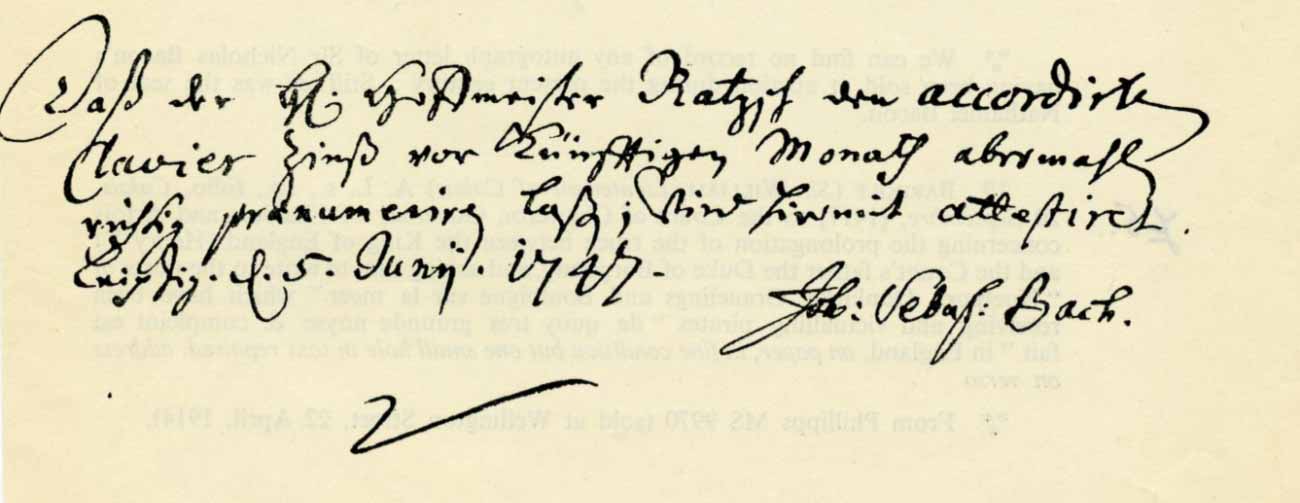 Daß der H. Hoffmeister Ratzsch den accordirten
Clavier Zinß vor künfftigen Monath abermahl
richtig praenumeriren laßen; Wird hiermit attestiret.
Leipzig d. 5 Junij. 1747
Joh: Sebast. Bach.